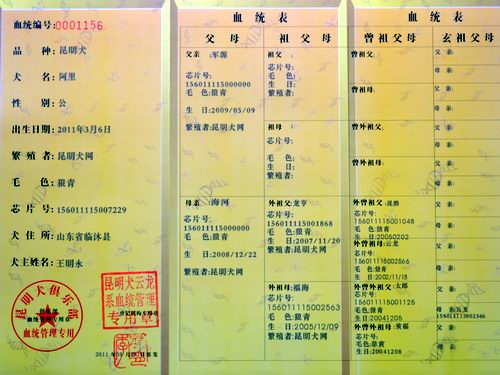 血统编号:0001156
品 种: 昆明犬
犬 名: 阿里
性 别: 公
出生日期: 2011年3月6日
繁 殖 者: 昆明犬网
毛 色: 狼青
芯 片 号: 156011115007229
犬 住 所: 山东省临沐县
犬主姓名: 王明水
昆明犬俱乐部
血统管理专用章
血统管理专用
昆明犬云龙
系血统管理
专用章
登记机构专用章
血统表
父 母
父亲 :军源
芯片号:
156011115000000
毛 色:狼青
生 日:2009/05/09
繁殖者:昆明犬网
母亲 :海河
芯片号:
156011115000000
毛 色:狼青
生 日:2008/12/22
繁殖者:昆明犬网
祖 父 母
祖父 :
芯片号:
毛 色:
生 日:
繁殖者:
祖母 :
芯片号:
毛 色:
生 日:
繁殖者:
外祖父:龙亨
芯片号:
156011115001868
毛 色:狼青
生 日:2007/11/20
繁殖者:昆明犬网
外祖母 :福海
芯片号:
156011115002563
毛 色:狼青
生 日:2005/12/09
繁殖者:昆明犬网
血 统 表
曾 祖 父 母
曾祖父:
曾祖母:
曾外祖父:
曾外祖母:
外曾祖父:昆熊
芯片号:
156011115001048
毛色:狼青
生日:20050202
外曾祖母:云龙
芯片号:
156011115002566
毛色:狼青
生日:2002/11/18
外曾外祖父:太郎
芯片号:
156011115001125
毛色:狼青
生日:20041205
外曾外祖母:黄福
芯片号:
毛色:草黄
生日:20041208
玄祖父母
父 亲:
母 亲:
父 亲:
母 亲:
父 亲:
母 亲:
父 亲:
母 亲:
父 亲:
母 亲:
父 亲:
母 亲:
父 亲:
母亲:云龙
156011115002566
父 亲:
母 亲: